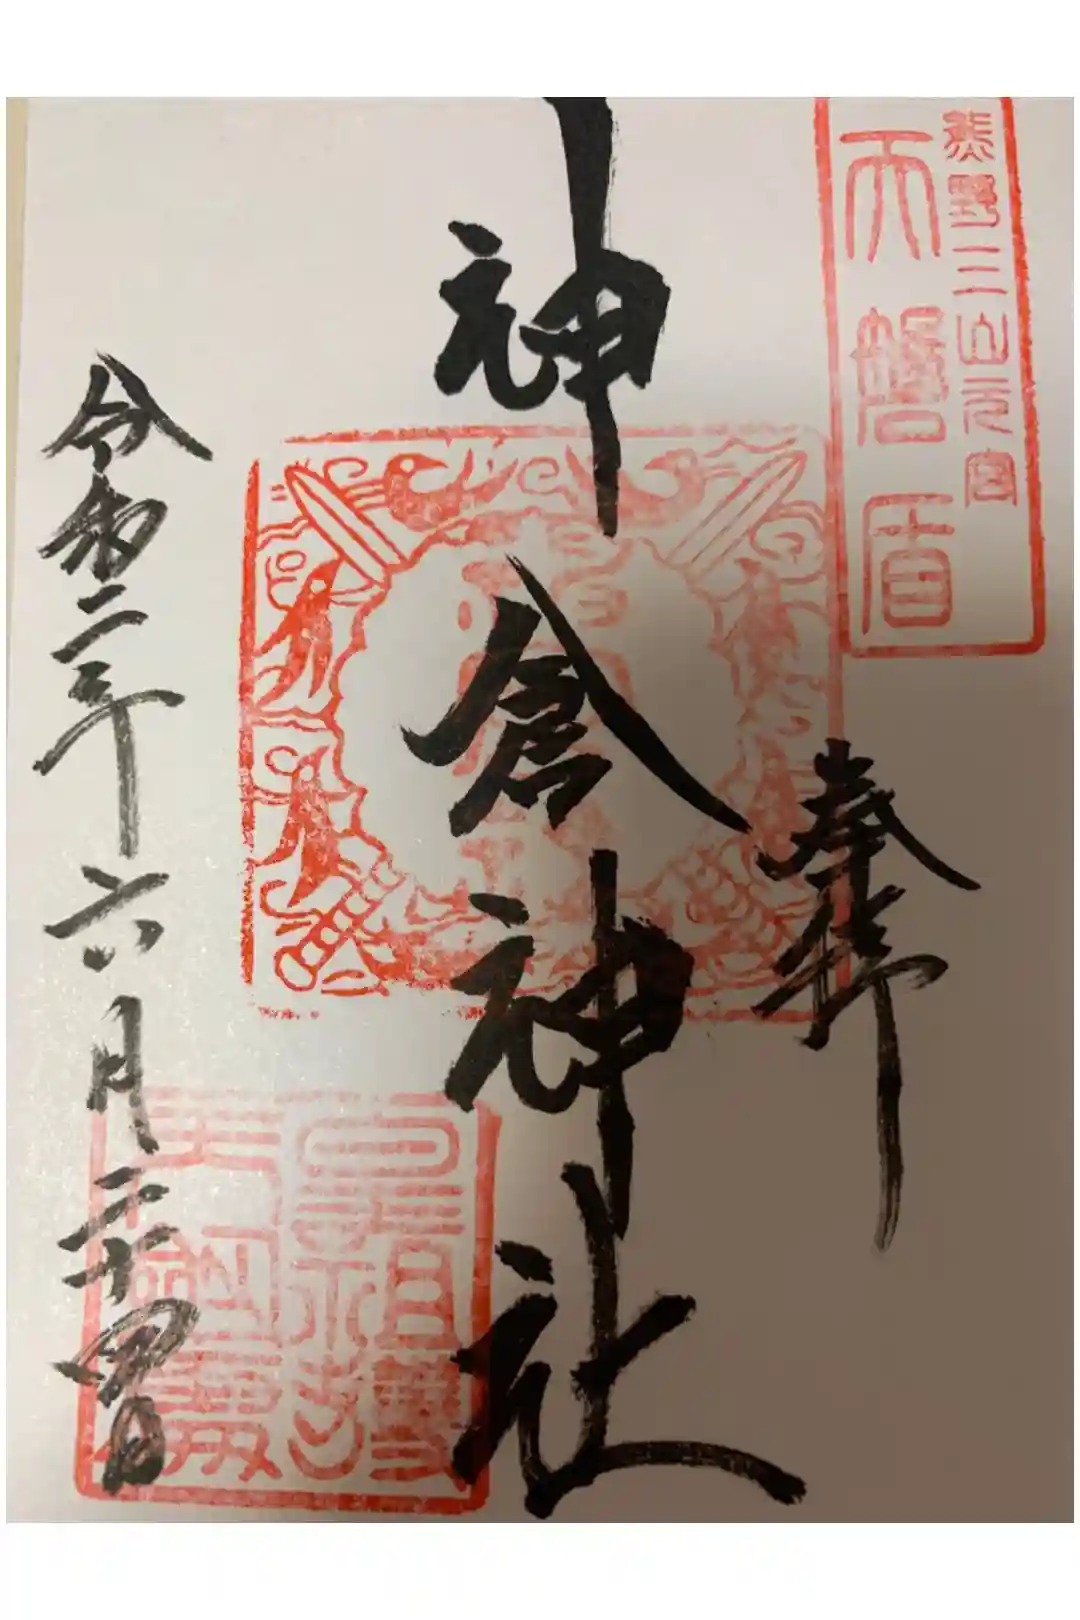 熊野三山元宮
天磐盾
奉拝
神倉神社
令和二年六月二十四日